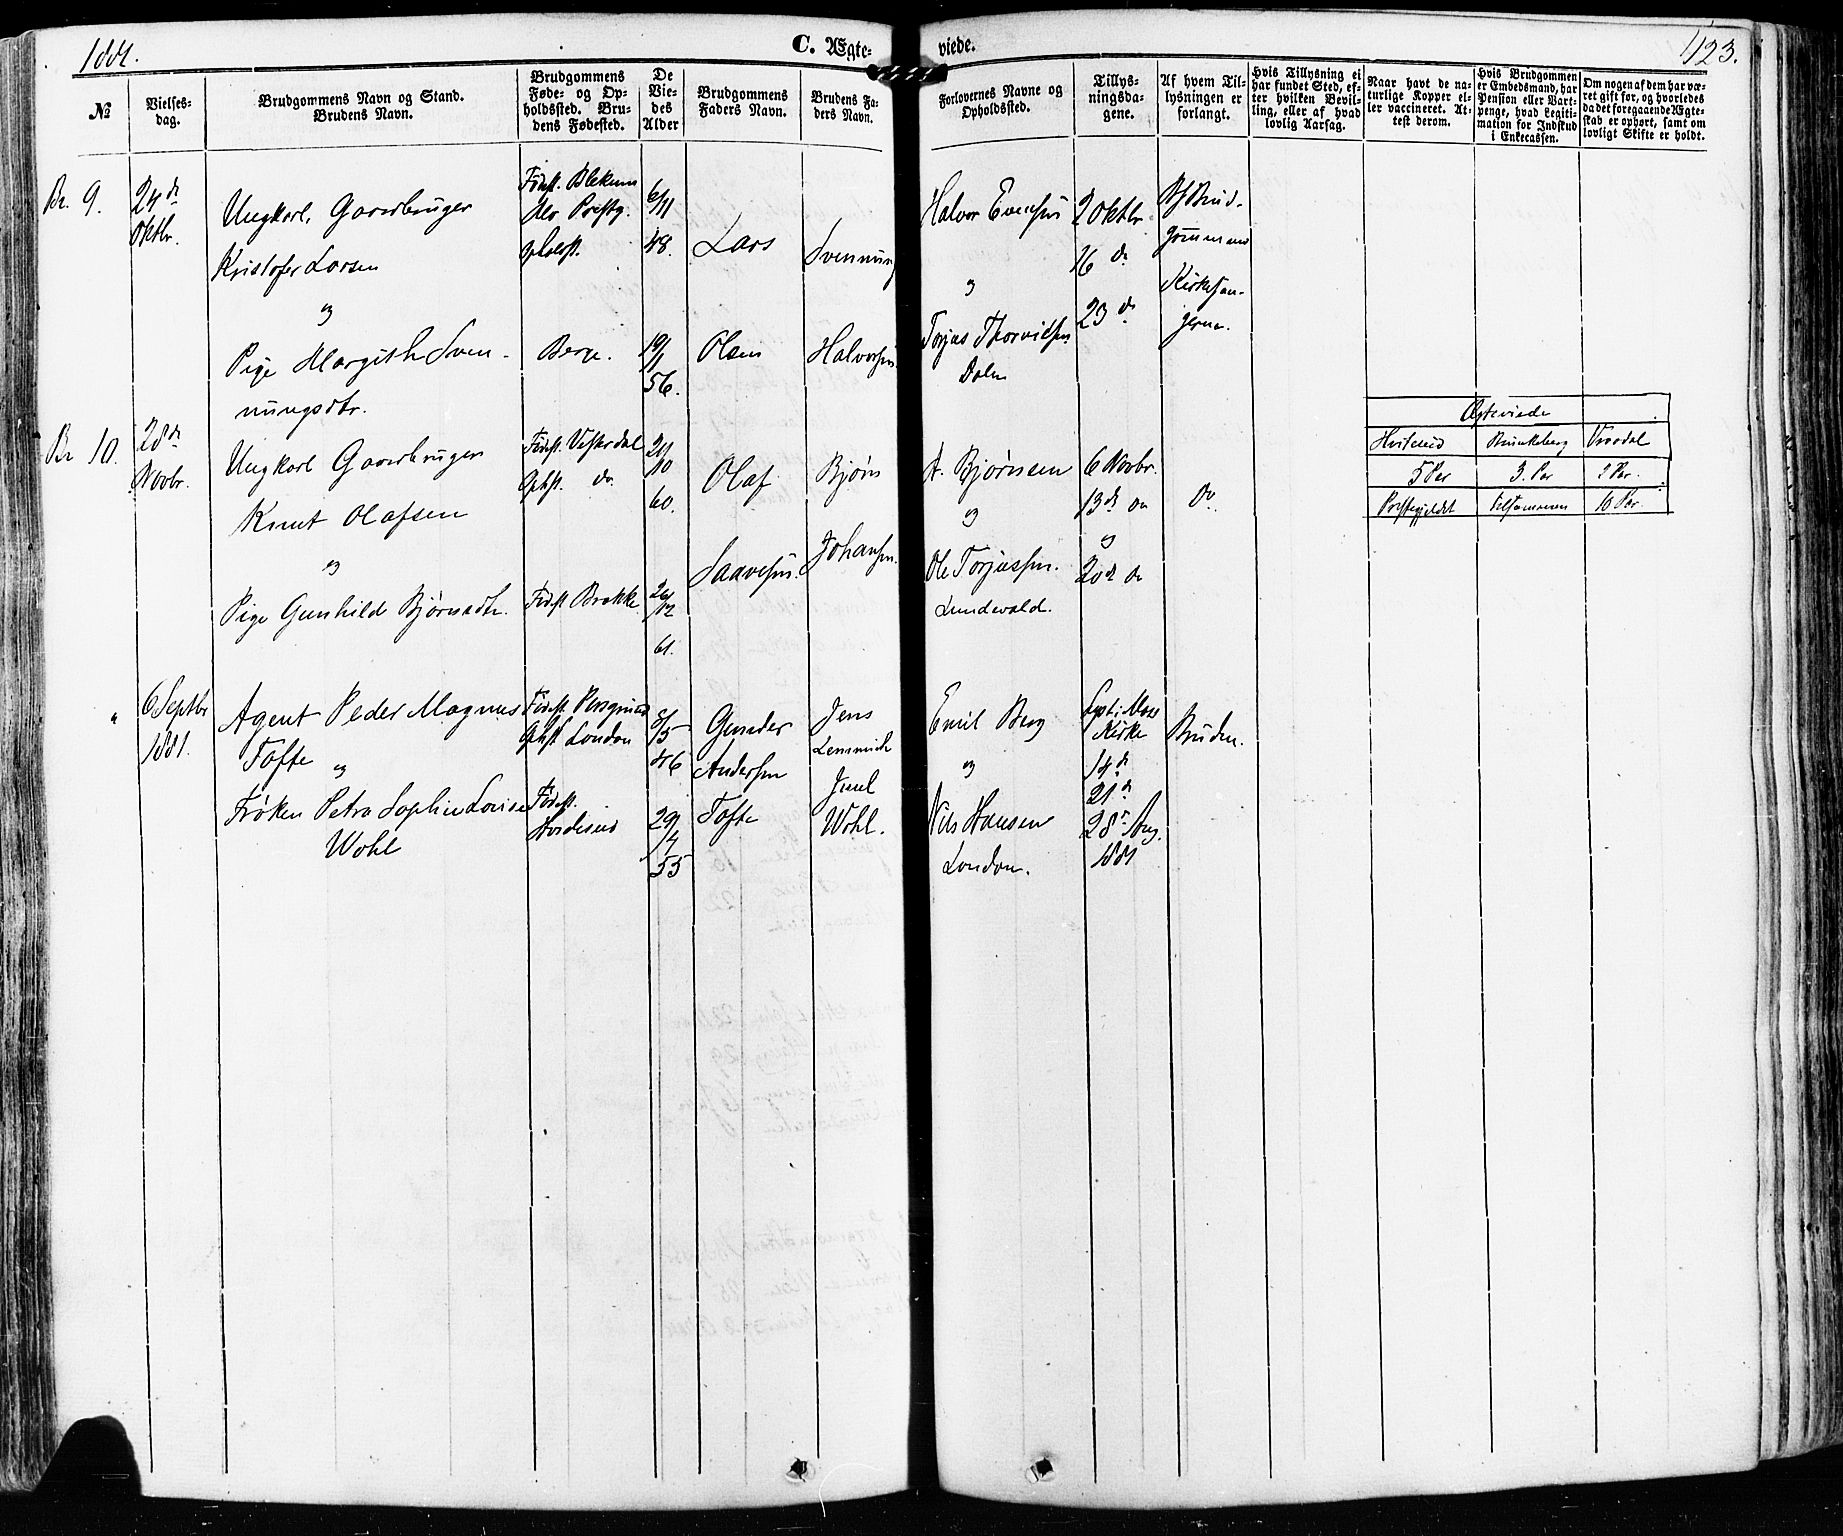 1881.
C. Ægte-
viede.
123.
№
Vielses-
dag.
Brudgommens Navn og Stand.
Brudens Navn.
Brudgommens
Føde- og Op-
holdssted. Bru-
dens Fødested.
De
Vie-
des
Alder
Brudgommens
Faders Navn.
Brudens Fa-
ders Navn.
Forlovernes Navne og
Opholdssted.
Tillys-
ningsda-
gene.
Af hvem Til-
lysningen er
forlangt.
Hvis Tillysning ei
har fundet Sted, ef-
ter hvilken Bevil-
ling, eller af hvad
lovlig Aarsag.
Naar havt de na-
turlige Kopper el-
ler vaccineret. At-
test derom.
Hvis Brudgommen
er Embedsmand, har
Pension eller Vart-
penge, hvad Legiti-
mation for Indskud
i Enkecassen.
Om nogen af dem har væ-
ret gift før, og hvorledes
da det foregaaende Ægte-
skab er ophørt, samt om
lovligt Skifte er holdt.
Br. 9.
24de
Oktbr.
Ungkarl, Gaardbruger
Kristofer Larsen
og
Pige Margith Sven-
nungsdtr.
Prestg.
Berge.
6/11
48.
19/1
56.
Lars
Olsen
Svennung
Halvorsen
Halvor Evensen
og
Torjus Thorvildsen
Dalen
2 Oktbr.
16 de
23 de
Af Brud-
gommen
Kirkesan-
geren.
Br 10.
28de
Novbr.
Ungkarl Gaardbruger
Knut Olafsen
og
Pige Gunhild Bjørnsdtr.
Fødest. Vesterdal
Opst. do.
Fødst Brekke
60.
61.
Olaf
Saavesen.
Bjørn
Johansen
A. Bjørnsen
og
Ole Torjussen.
Lundevald.
6 Novbr.
13de do
og
20de do
do
Ægteviede
Hviteseid
Brunkeberg
Vraadal
5 Par
3. Par
2 Par.
Prestegjeldet
Tilsammen
10 Par.
"
6 Septbr
1881.
Agent Peder Magnus
Tofte
og
Frøken Petra Sophie Louise
Wohl
Fødest. Porsgrund
Opst London
Fødest.
8/5
46
29/4
55
Gunder
Andersen
Tofte
Jens
Lemmich
Juel
Wohl.
Emil Berg
og
Nils Hansen
London.
Kirke
14de
21de
28de Aug.
1881
Bruden.